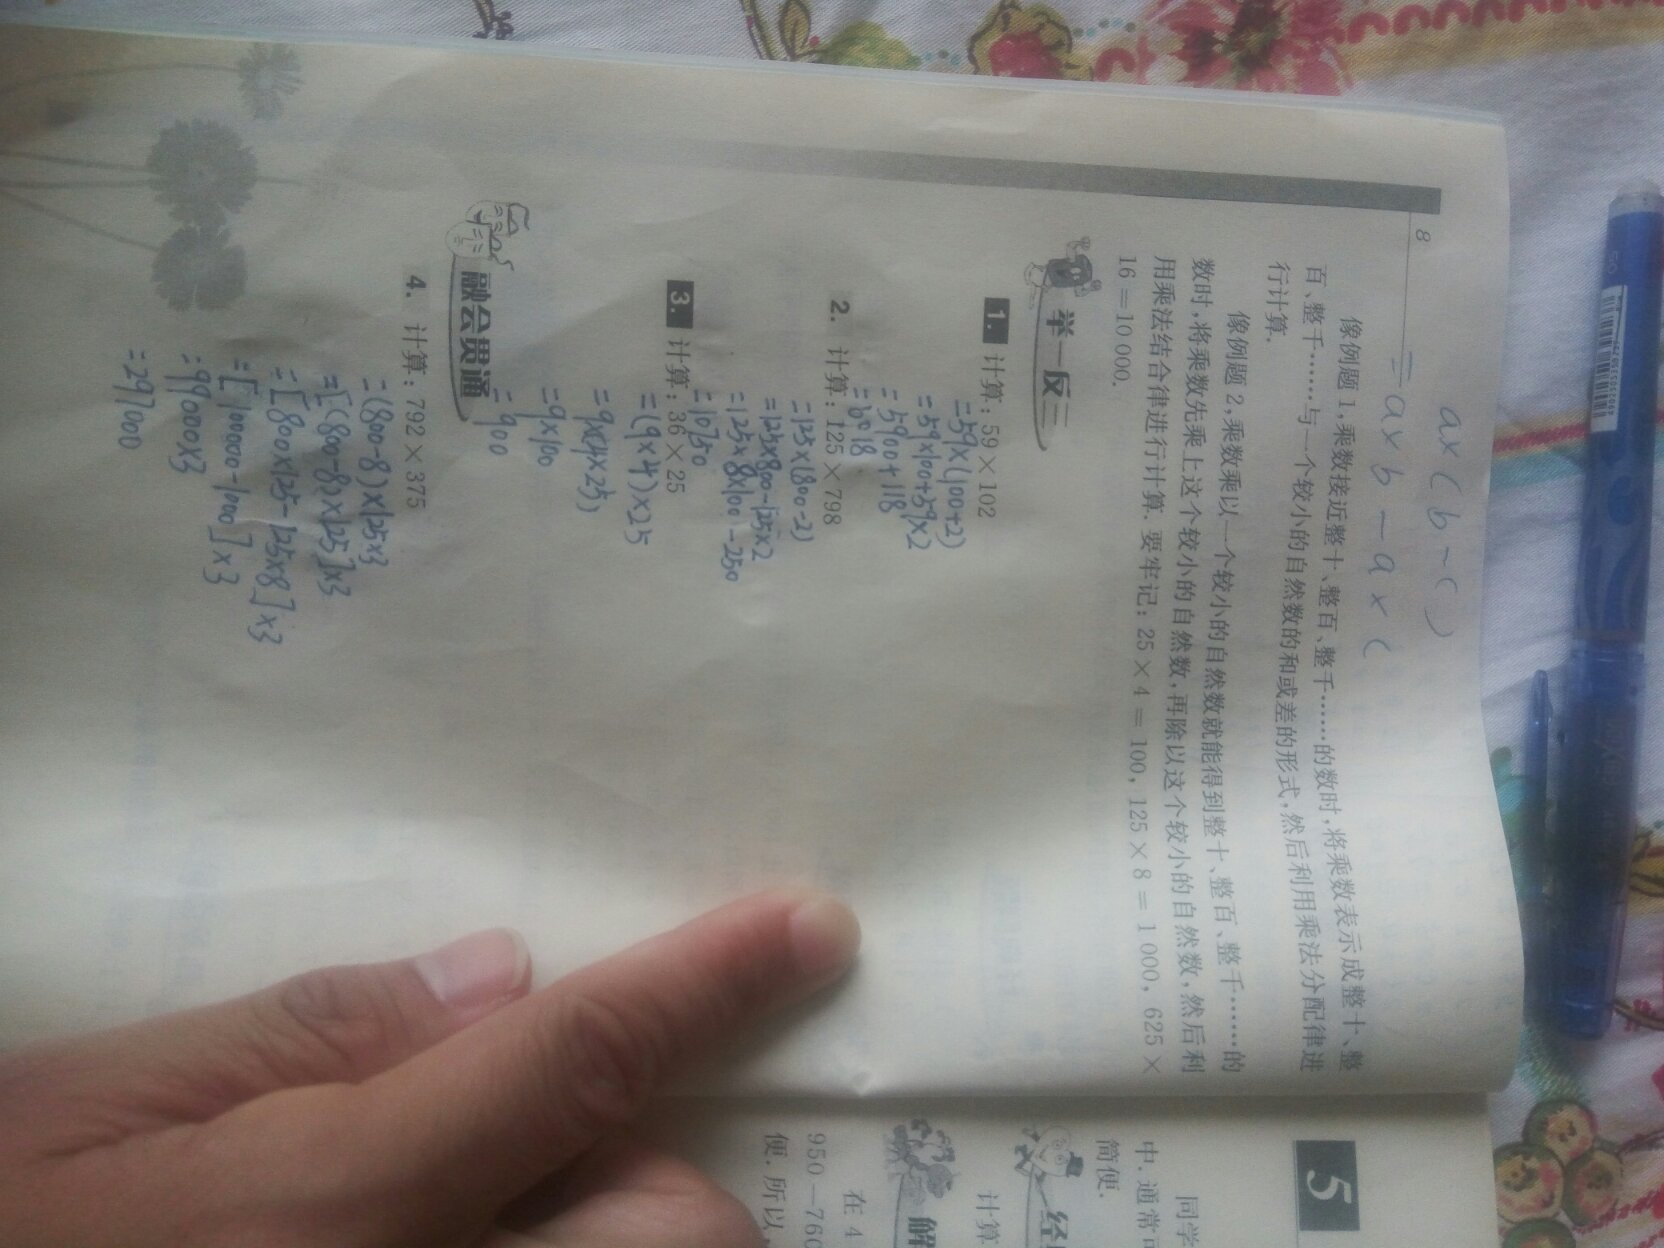 8
a×(b-c)
=a×b-a×c
像例题1,乘数接近整十、整百、整千……的数时,将乘数表示成整十、整
百、整千……与一个较小的自然数的和或差的形式,然后利用乘法分配律进
行计算.
像例题2,乘数乘以一个较小的自然数就能得到整十、整百、整千……的
数时,将乘数先乘上这个较小的自然数,再除以这个较小的自然数,然后利
用乘法结合律进行计算.要牢记:25×4=100,125×8=1000,625×
16=10000.
举一反三
1. 计算:59×102
=59×(100+2)
=59×100+59×2
=5900+118
=6018
2. 计算:125×798
=125×(800-2)
=125×800-125×2
=125×8×100-250
=10750
3. 计算:36×25
=(9×4)×25
=9×(4×25)
=9×100
=900
融会贯通
4. 计算:792×375
=(800-8)×125×3
=[(800-8)×125]×3
=[800×125-125×8]×3
=[100000-1000]×3
=99000×3
=297000
5
同学
中.通常可
简便.
经
计算
解
在4
950-760
便.所以